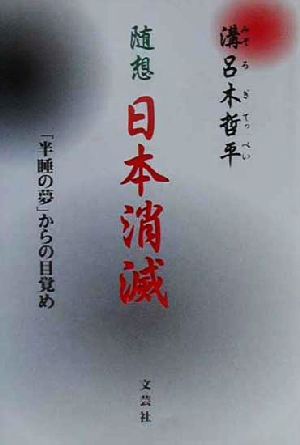 溝呂木哲平
みぞろぎてっぺい
随想
日本消滅
「半睡の夢」からの目覚め
文芸社